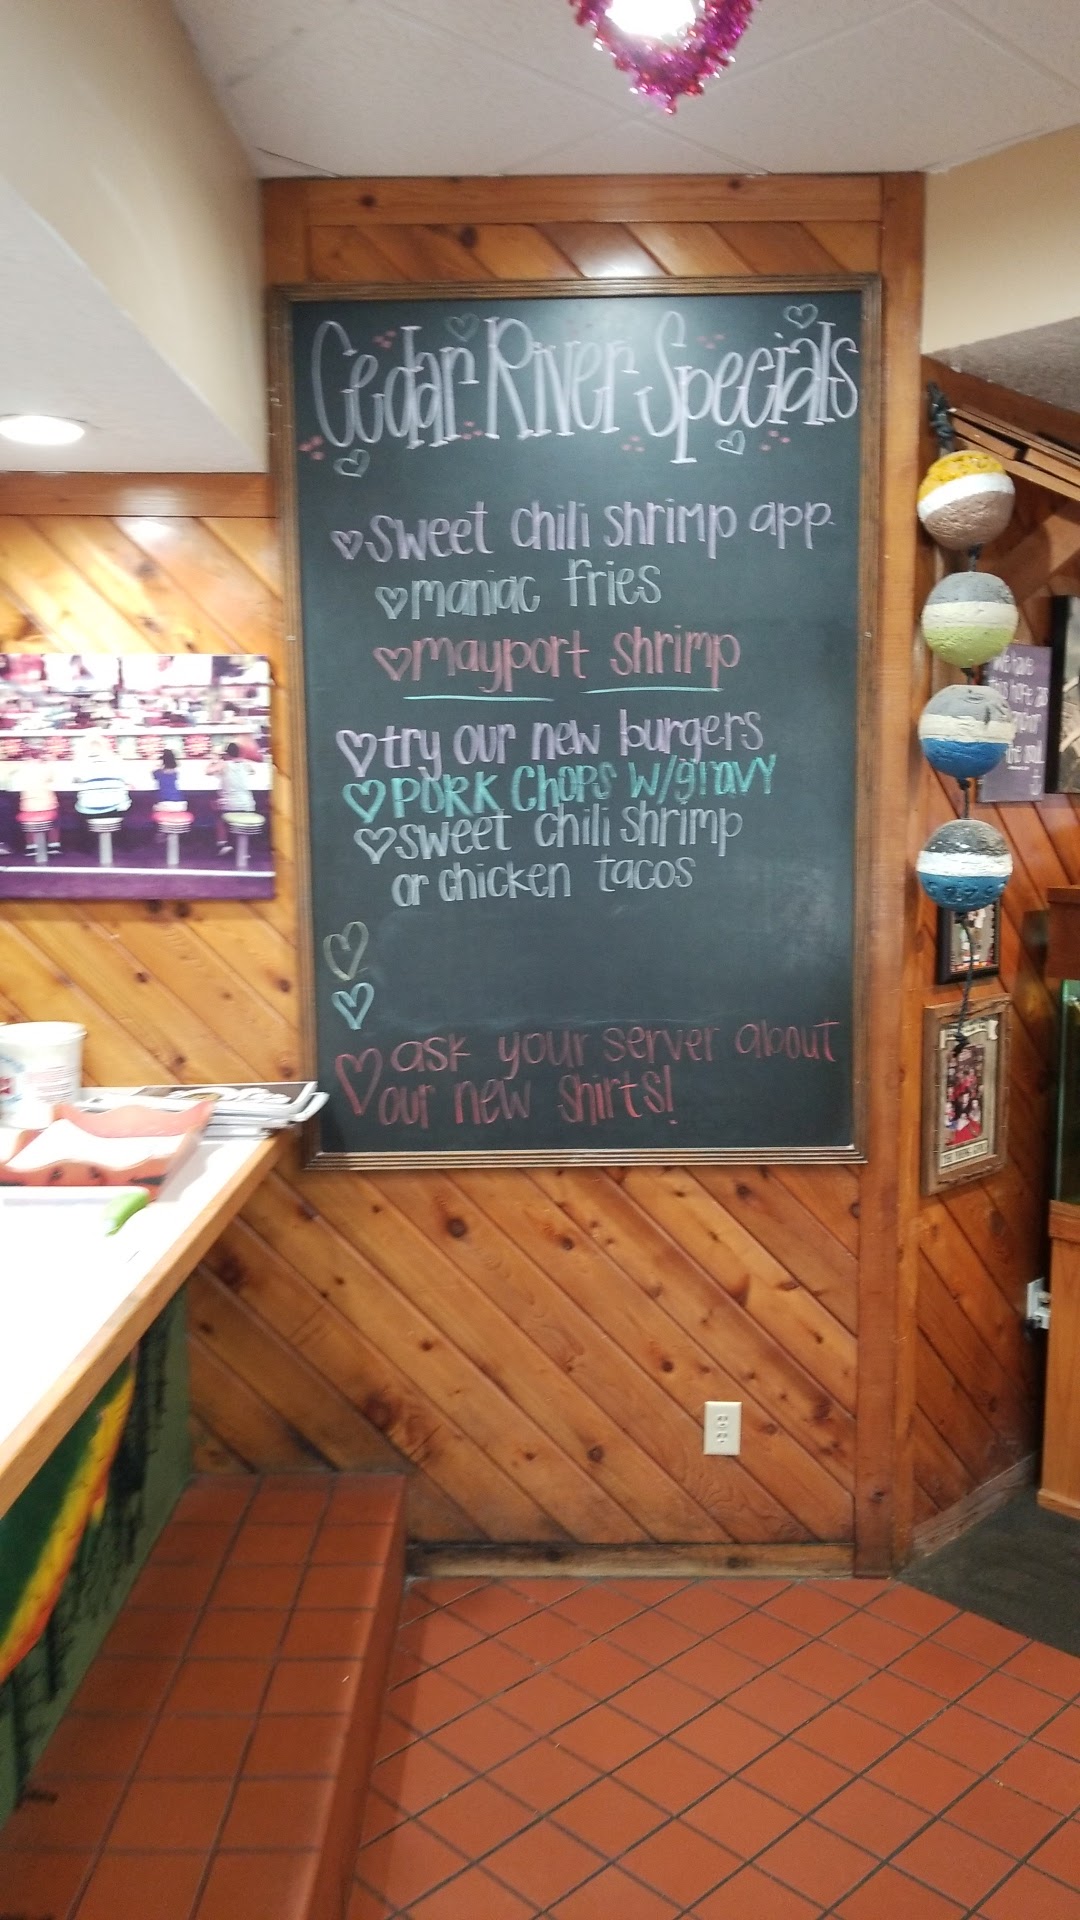 Cedar River Specials
sweet chili shrimp app.
maniac fries
mayport shrimp
try our new burgers
PORK CHOPS W/gravy
sweet chili shrimp
or chicken tacos
ask your server about
our new shirts!
We have
this hope as